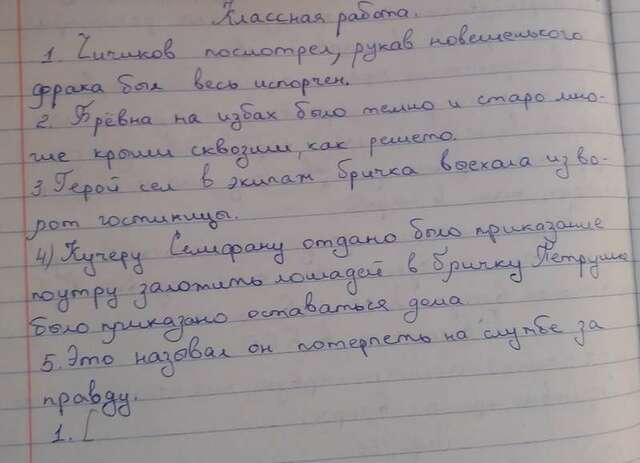 Классная работа.
1. Чичиков посмотрел, рукав новешенького
фрака был весь испорчен.
2. Брёвна на избах было темно и старо мно-
гие крыши сквозили, как решето.
3. Герой сел в экипаж бричка выехала из во-
рот гостиницы.
4) Кучеру Селифану отдано было приказание
поутру заложить лошадей в бричку Петрушке
было приказано оставаться дома
5. Это называл он потерпеть на службе за
правду.
1. [